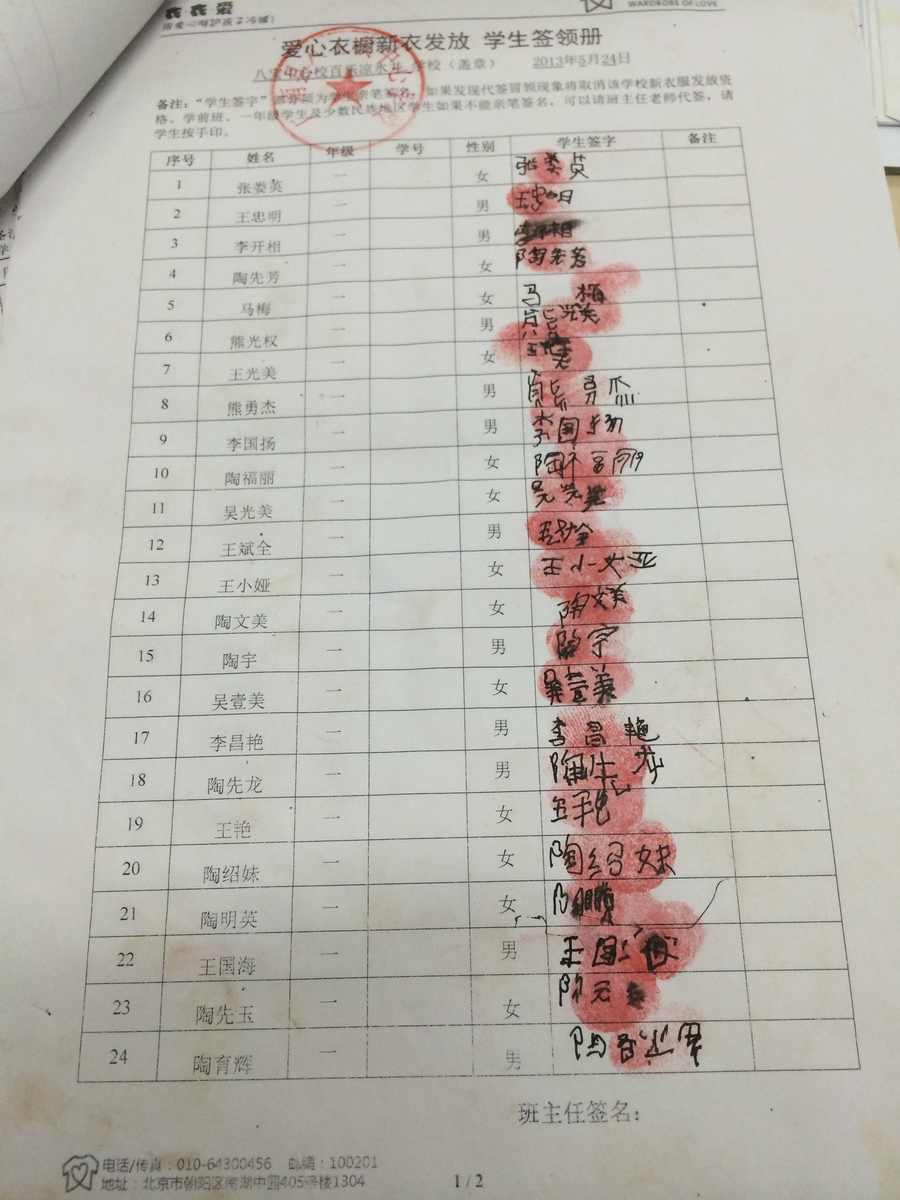 衣·衣·爱
WARDROBE OF LOVE
爱心衣橱新衣发放 学生签领册
八宝中心校百乐凉水井 学校（盖章） 2013年5月24日
备注：“学生签字”部分须为学生亲笔签名，如果发现代签冒领现象将取消该学校新衣服发放资
格。学前班、一年级学生及少数民族地区学生如果不能亲笔签名，可以请班主任老师代签，请
学生按手印。
序号 姓名 年级 学号 性别 学生签字 备注
1 张娄英 一 女 张娄
2 王忠明 一 男 王忠明
3 李开相 一 男 相
4 陶先芳 一 女 陶先芳
5 马梅 一 女 马梅
6 熊光权 一 男
7 王光美 一 女 王 美
8 熊勇杰 一 男
9 李国扬 一 男 李国扬
10 陶福丽 一 女 陶
11 吴光美 一 女 吴光美
12 王斌全 一 男 王斌全
13 王小娅 一 女 王小娅
14 陶文美 一 女 陶文美
15 陶宇 一 男 陶宇
16 吴壹美 一 女 吴壹美
17 李昌艳 一 男 李昌艳
18 陶先龙 一 男 陶先龙
19 王艳 一 女 王艳
20 陶绍妹 一 女 陶绍妹
21 陶明英 一 女
22 王国海 一 男 王国海
23 陶先玉 一 女
24 陶育辉 一 男
班主任签名：
电话/传真：010-64300456 邮编：100201
地址：北京市朝阳区南湖中园405号楼1304
1 / 2